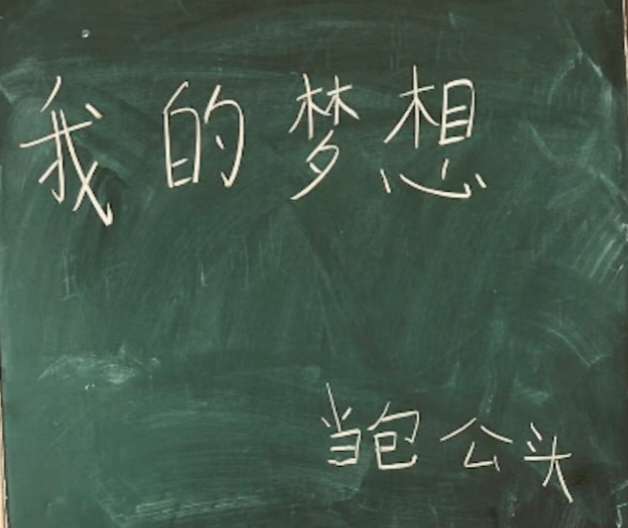 我的梦想
当包公头